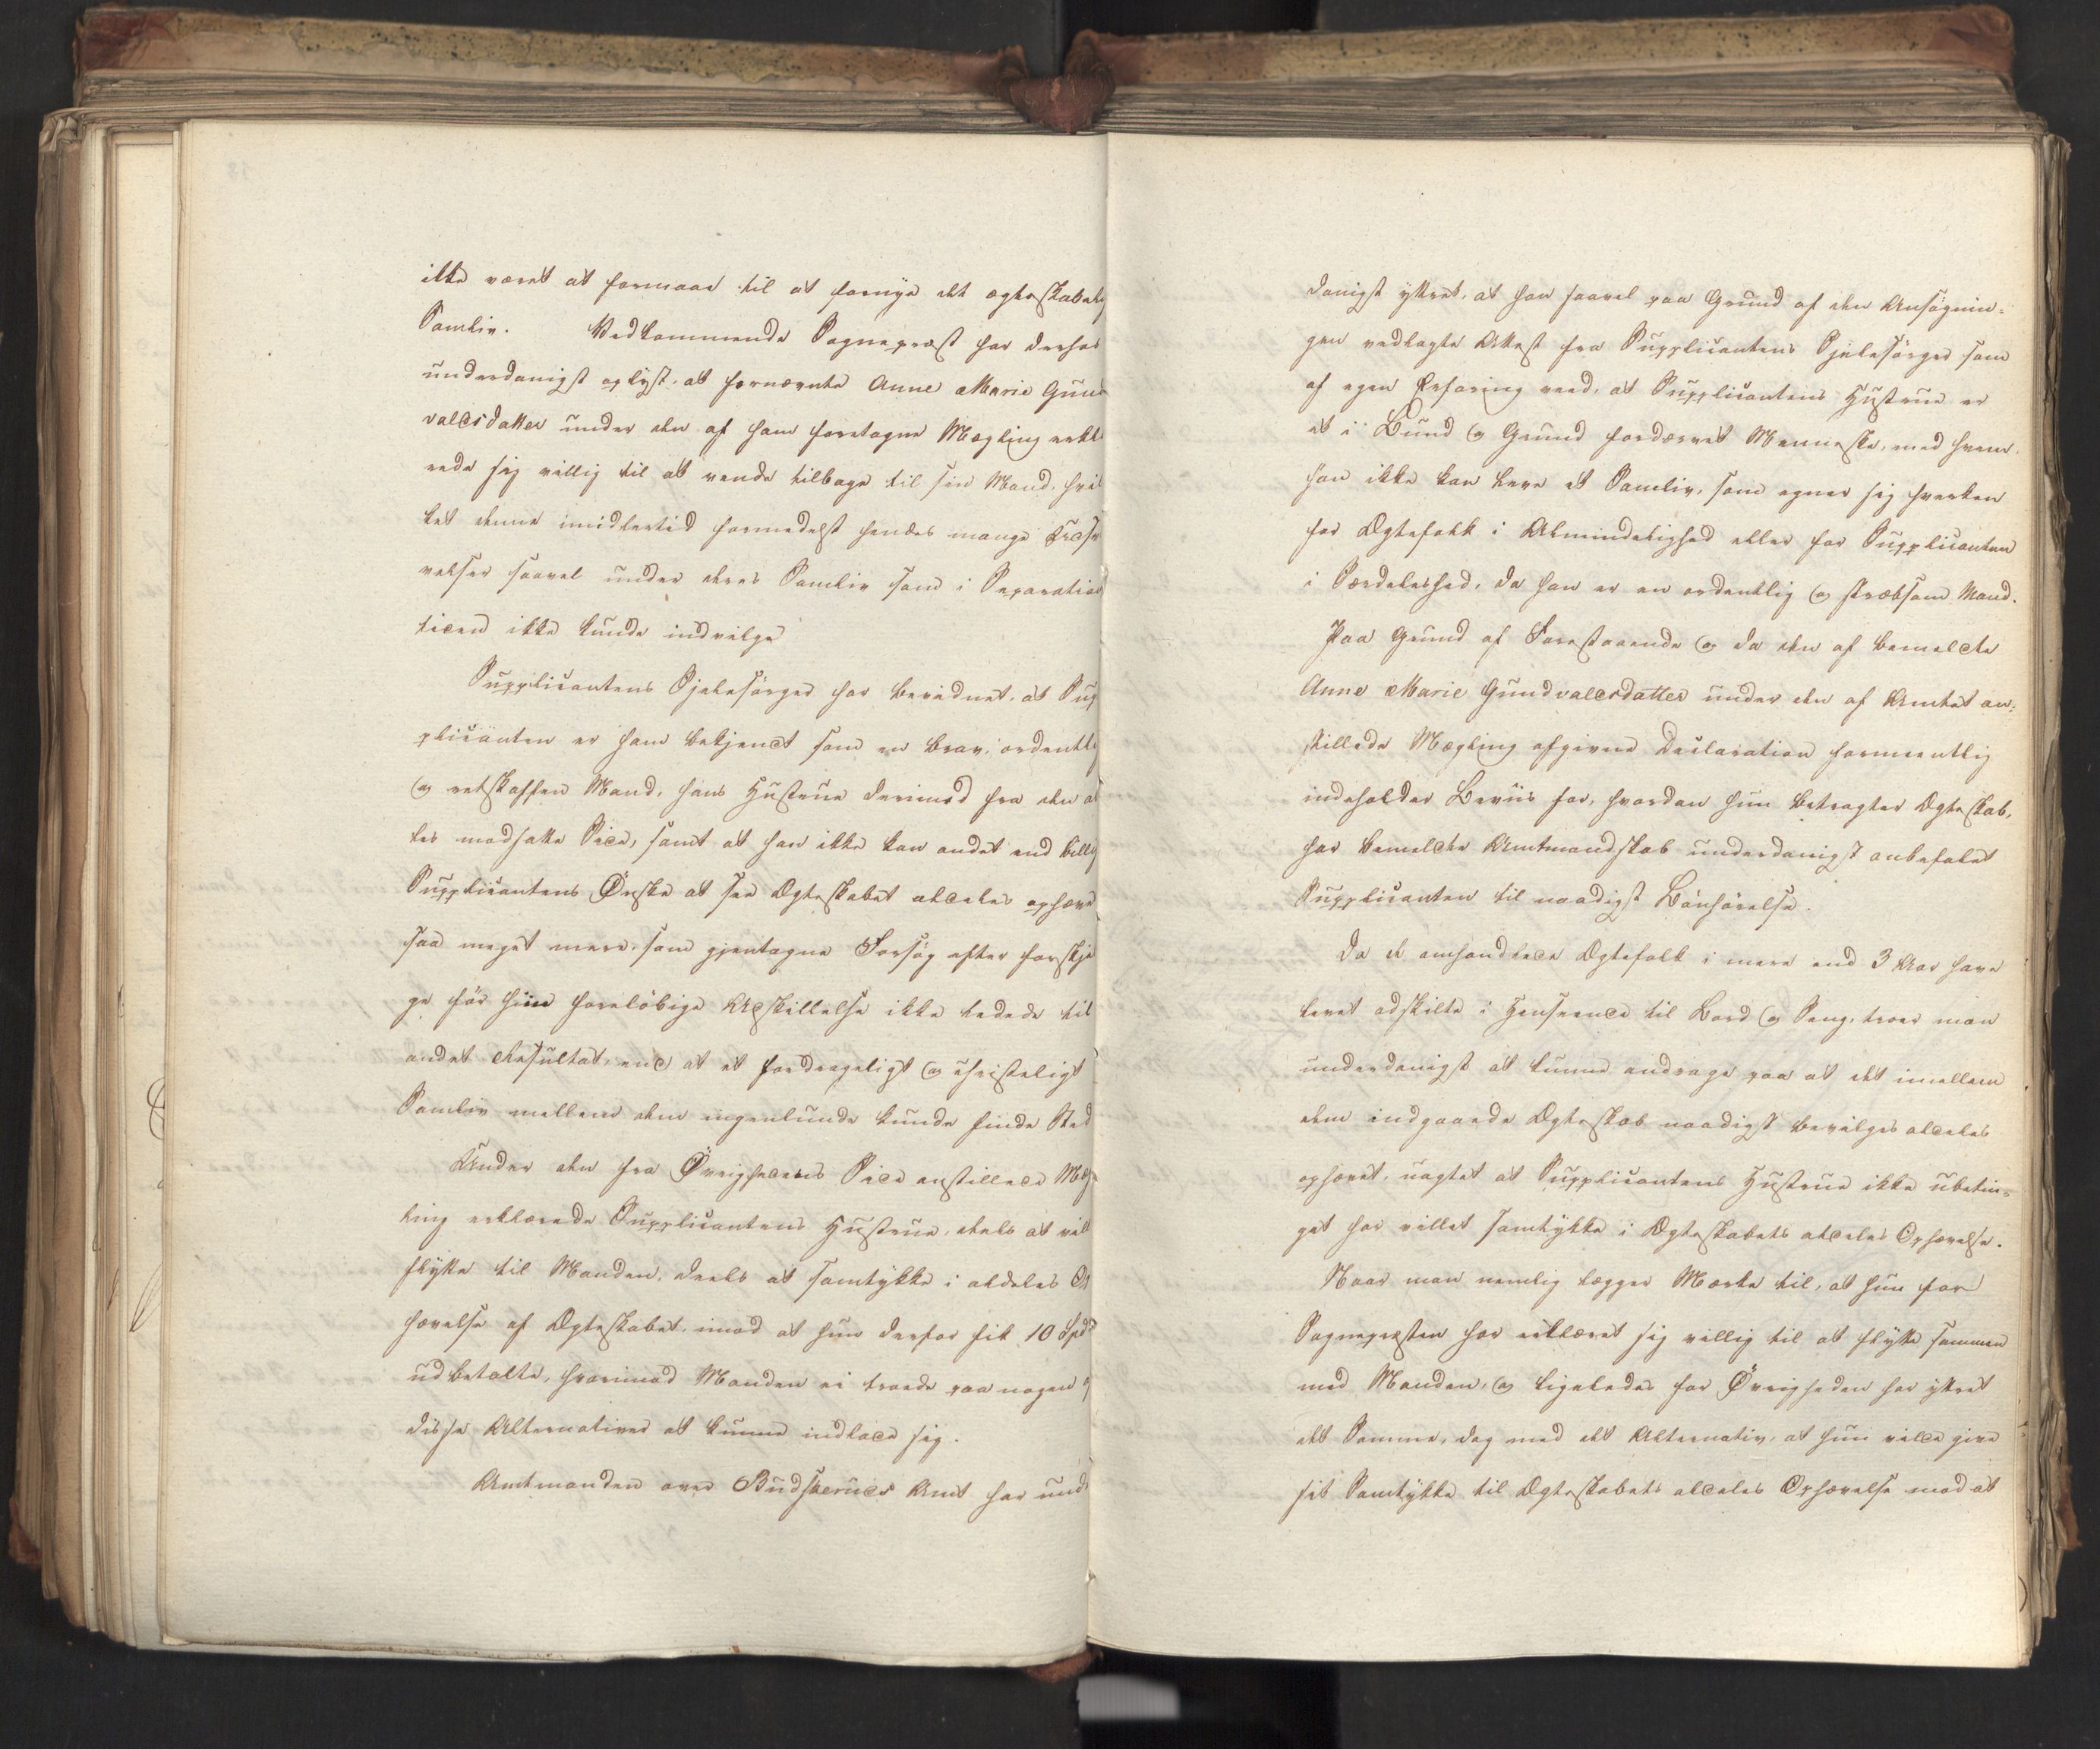 ikke været at formaae til at fornye det ægteskabelig
Samliv. Vedkommende Sognepræst har derhos
underdanigst oplyst, at fornævnte Anne Marie Gund
valdsdatter under den af ham foretagne Mægling erklæ
rede sig villig til at vende tilbage til sin Mand, hvil
ket denne imidlertid formedelst hendes mange Udsvæ
velser saavel under deres Samliv som i Separations
tiden ikke kunde indvilge
Supplicantens Sjelesørger har bevidnet, at Sup
plicanten er ham bekjendt som en brav, ordentlig
og retskaffen Mand, hans Hustrue derimod fra den al
les modsatte Side, samt at han ikke kan andet end billig
Supplicantens Ønske at see Ægteskabet aldeles ophæve
saa meget mere, som gjentagne Forsøg efter forskje
ge før hiin foreløbige Adskillelse ikke ledede til
andet Resultat, end at et fordrageligt og christeligt
Samliv mellem dem ingenlunde kunde finde Sted
Under den fra Øvrighedens Side anstillede Mæg
ling erklærede Supplicantens Hustrue, deels at ville
flytte til Manden, deels at samtykke i aldeles Op
hævelse af Ægteskabet, imod at hun derfor fik 10 Spd
udbetalte, hvorimod Manden ei troede paa nogen af
disse Alternativer at kunne indlade sig.
Amtmanden over Budskeruds Amt har under
danigst yttret, at han saavel paa Grund af den Ansøgnin-
gen vedlagte Attest fra Supplicantens Sjelesørger som
af egen Erfaring veed, at Supplicantens Hustrue er
et i Bund og Grund fordærvet Menneske, med hvem
han ikke kan leve et Samliv, som egner sig hverken
for Ægtefolk i Almindelighed eller for Supplicanten
i Særdeleshed, da han er en ordentlig og stræbsom Mand.
Paa Grund af Forestaaende og da den af bemeldte
Anne Marie Gundvaldsdatter under den af Amtet an-
stillede Mægling afgivne Declaration formeentlig
indeholder Beviis for, hvordan hun betragter Ægteskab,
har bemeldte Amtmandskab underdanigst anbefalet
Supplicanten til naadigst Bønhørelse.
Da de omhandlede Ægtefolk i mere end 3 Aar have
levet adskilte i Henseende til Bord og Seng, troer man
underdanigst at kunne andrage paa at det imellem
dem indgaaede Ægteskab naadigst bevilges aldeles
ophævet, uagtet at Supplicantens Hustrue ikke ubetin-
get har villet samtykke i Ægteskabets aldeles Ophævelse.
Naar man nemlig lægger Mærke til, at hun for
Sognepræsten har erklæret sig villig til at flytte sammen
med Manden, og ligeledes for Øvrigheden har yttret
det Samme, dog med det Alternativ, at hun vilde give
sit Samtykke til Ægteskabets aldeles Ophævelse mod at